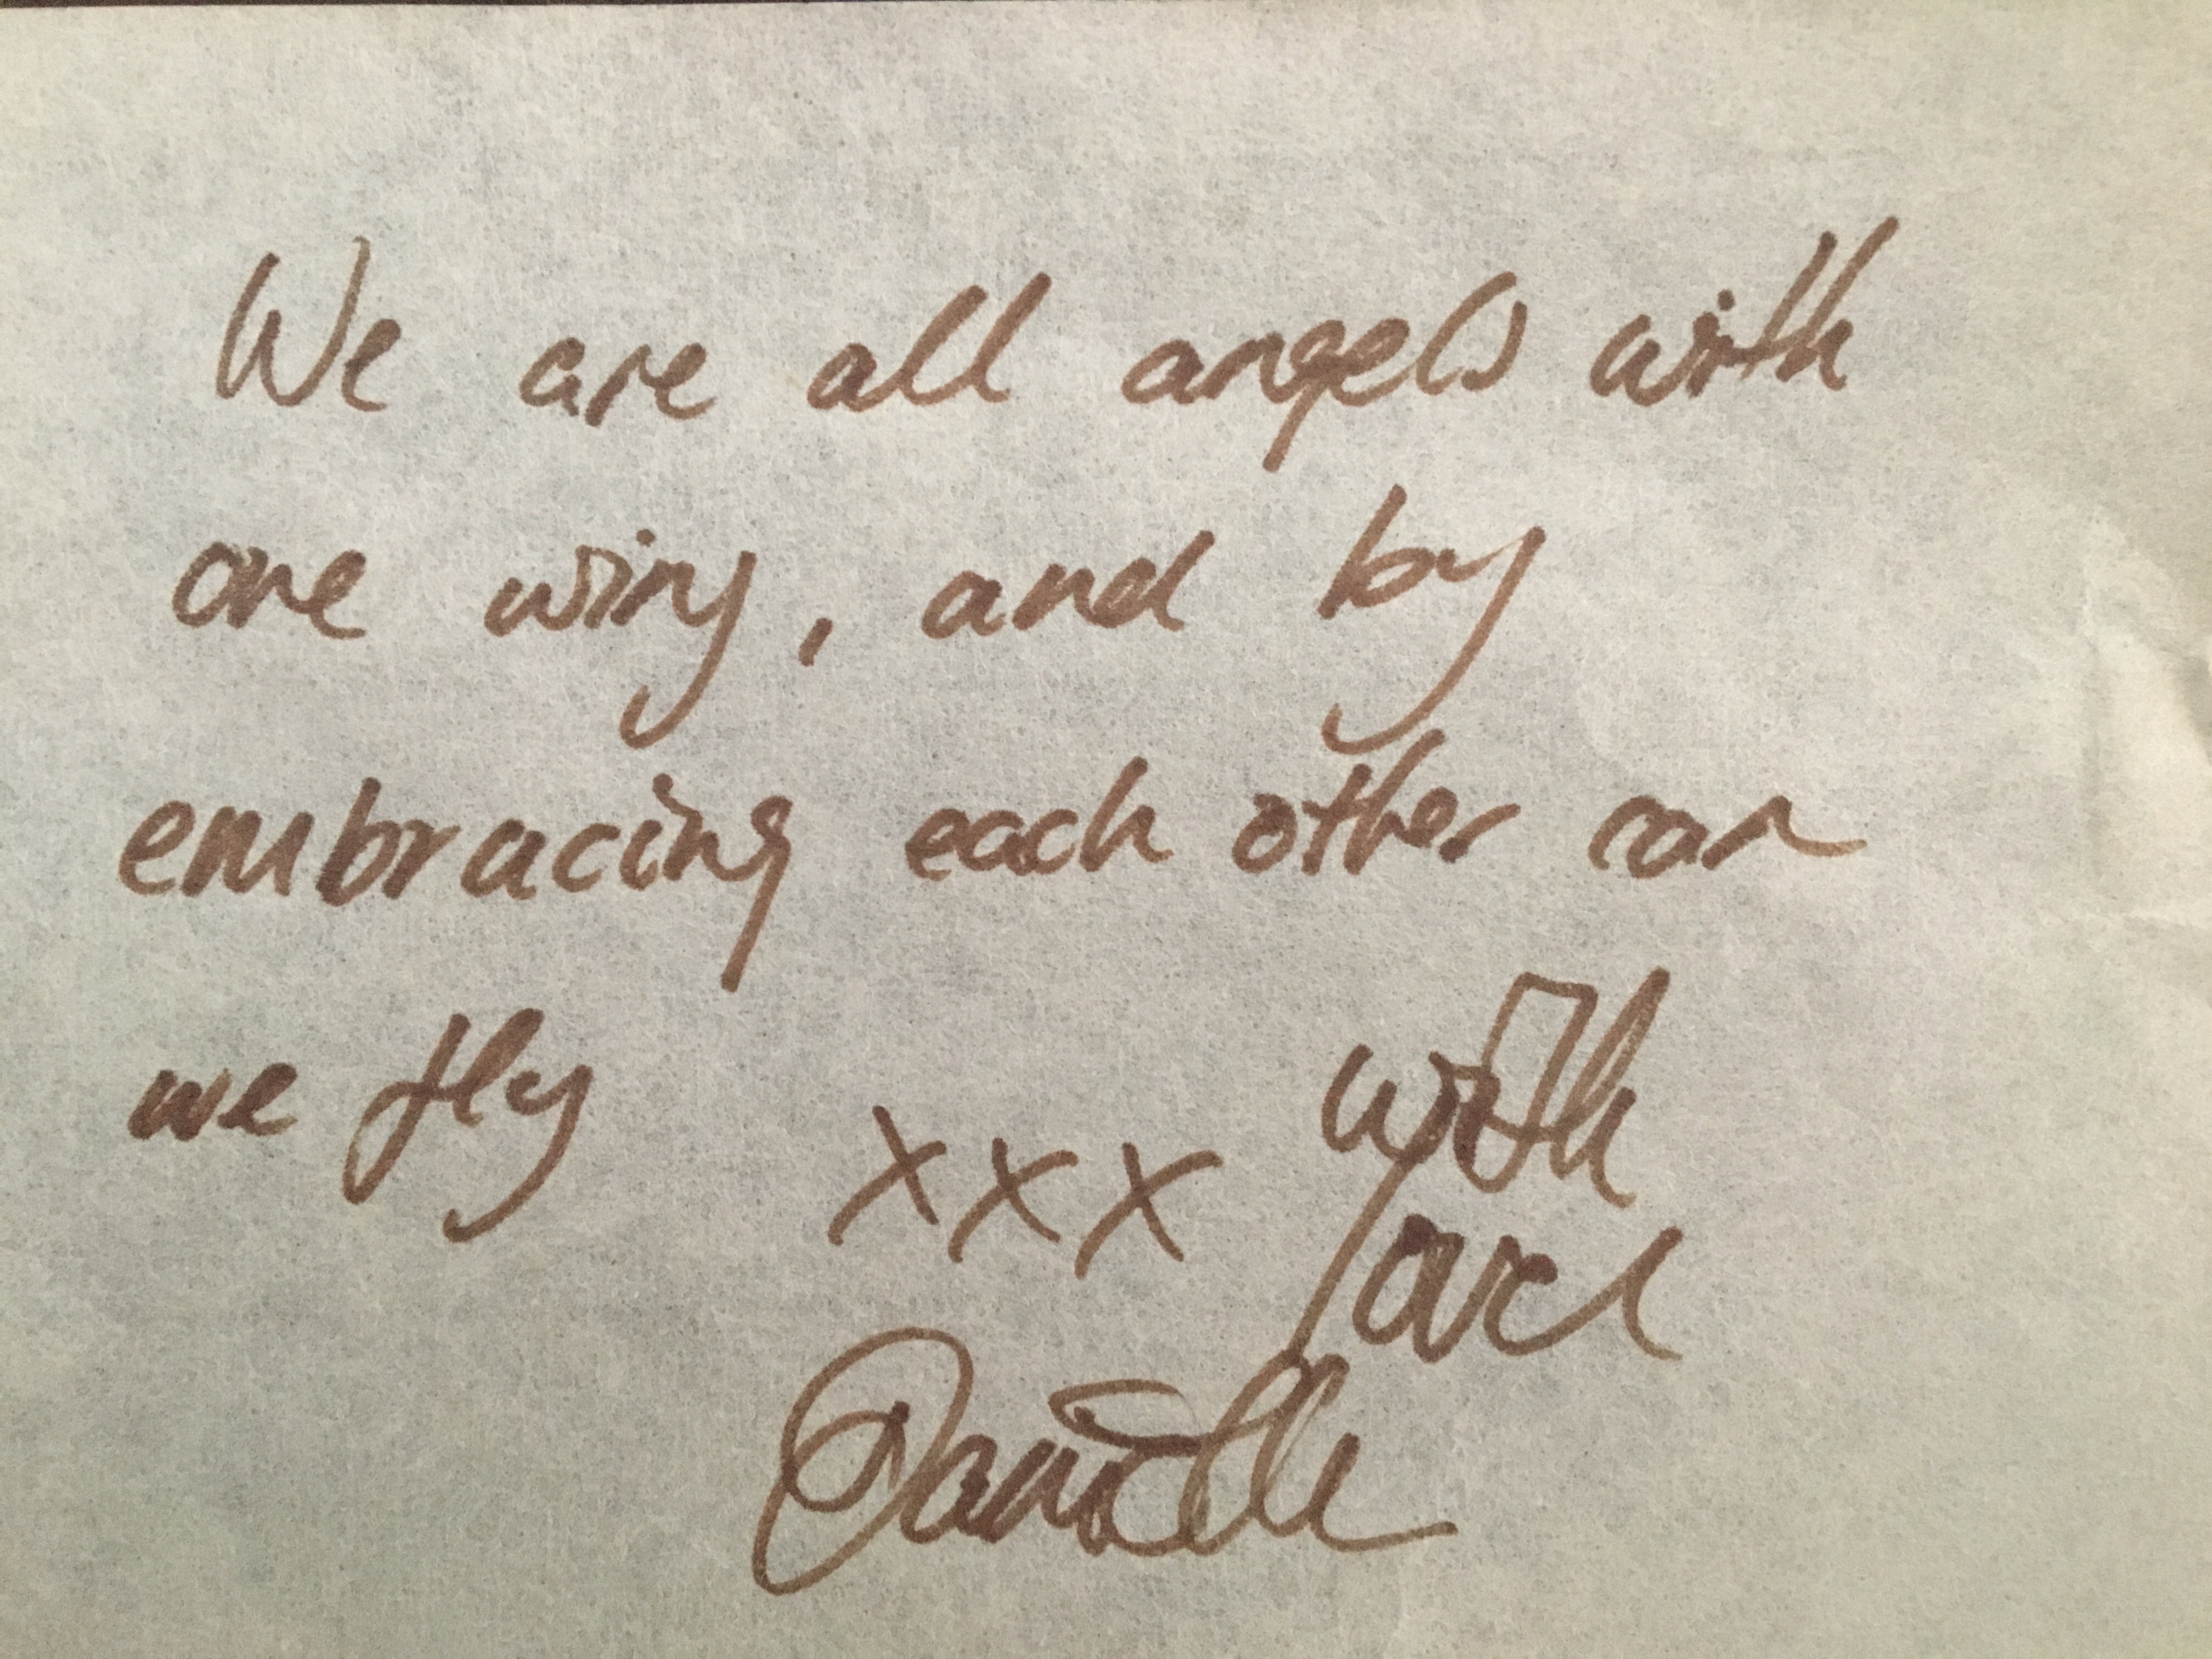 We are all angels with
one wing, and by
embracing each other can
we fly
xxx with
love
Danielle